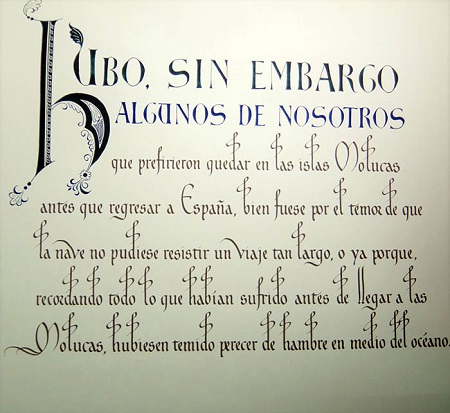 HUBO, SIN EMBARGO
ALGUNOS DE NOSOTROS
que prefirieron quedar en las islas Molucas
antes que regresar a España, bien fuese por el temor de que
la nave no pudiese resistir un viaje tan largo, o ya porque,
recordando todo lo que habían sufrido antes de llegar a las
Molucas, hubiesen temido perecer de hambre en medio del océano.